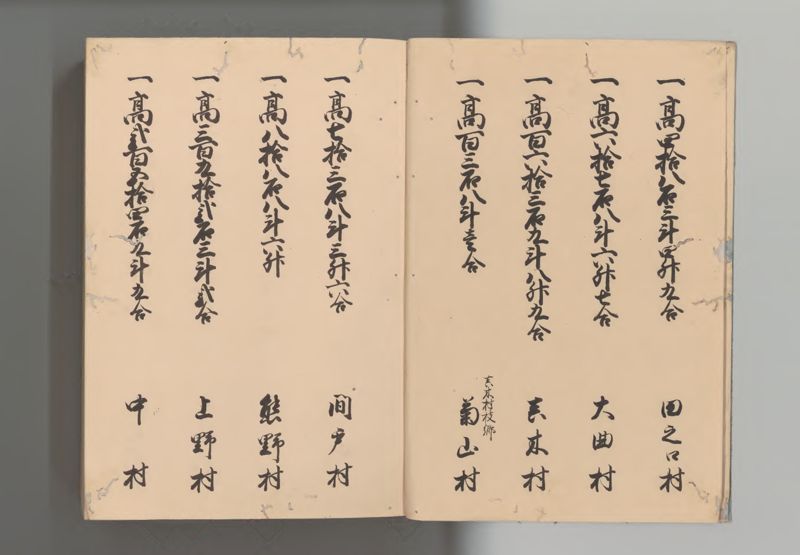 一高四拾八石三斗四升九合 田之口村
一高六拾七石八斗六升七合 大曲村
一高百六拾三石九斗八升九合 真木村
真木村枝郷
一高百三石八斗壱合 菊山村
一高七拾三石八斗三升六合 間戸村
一高八拾八石八斗六升 熊野村
一高三百九拾弐石三斗弐合 上野村
一高弐百五拾四石九斗九合 中村